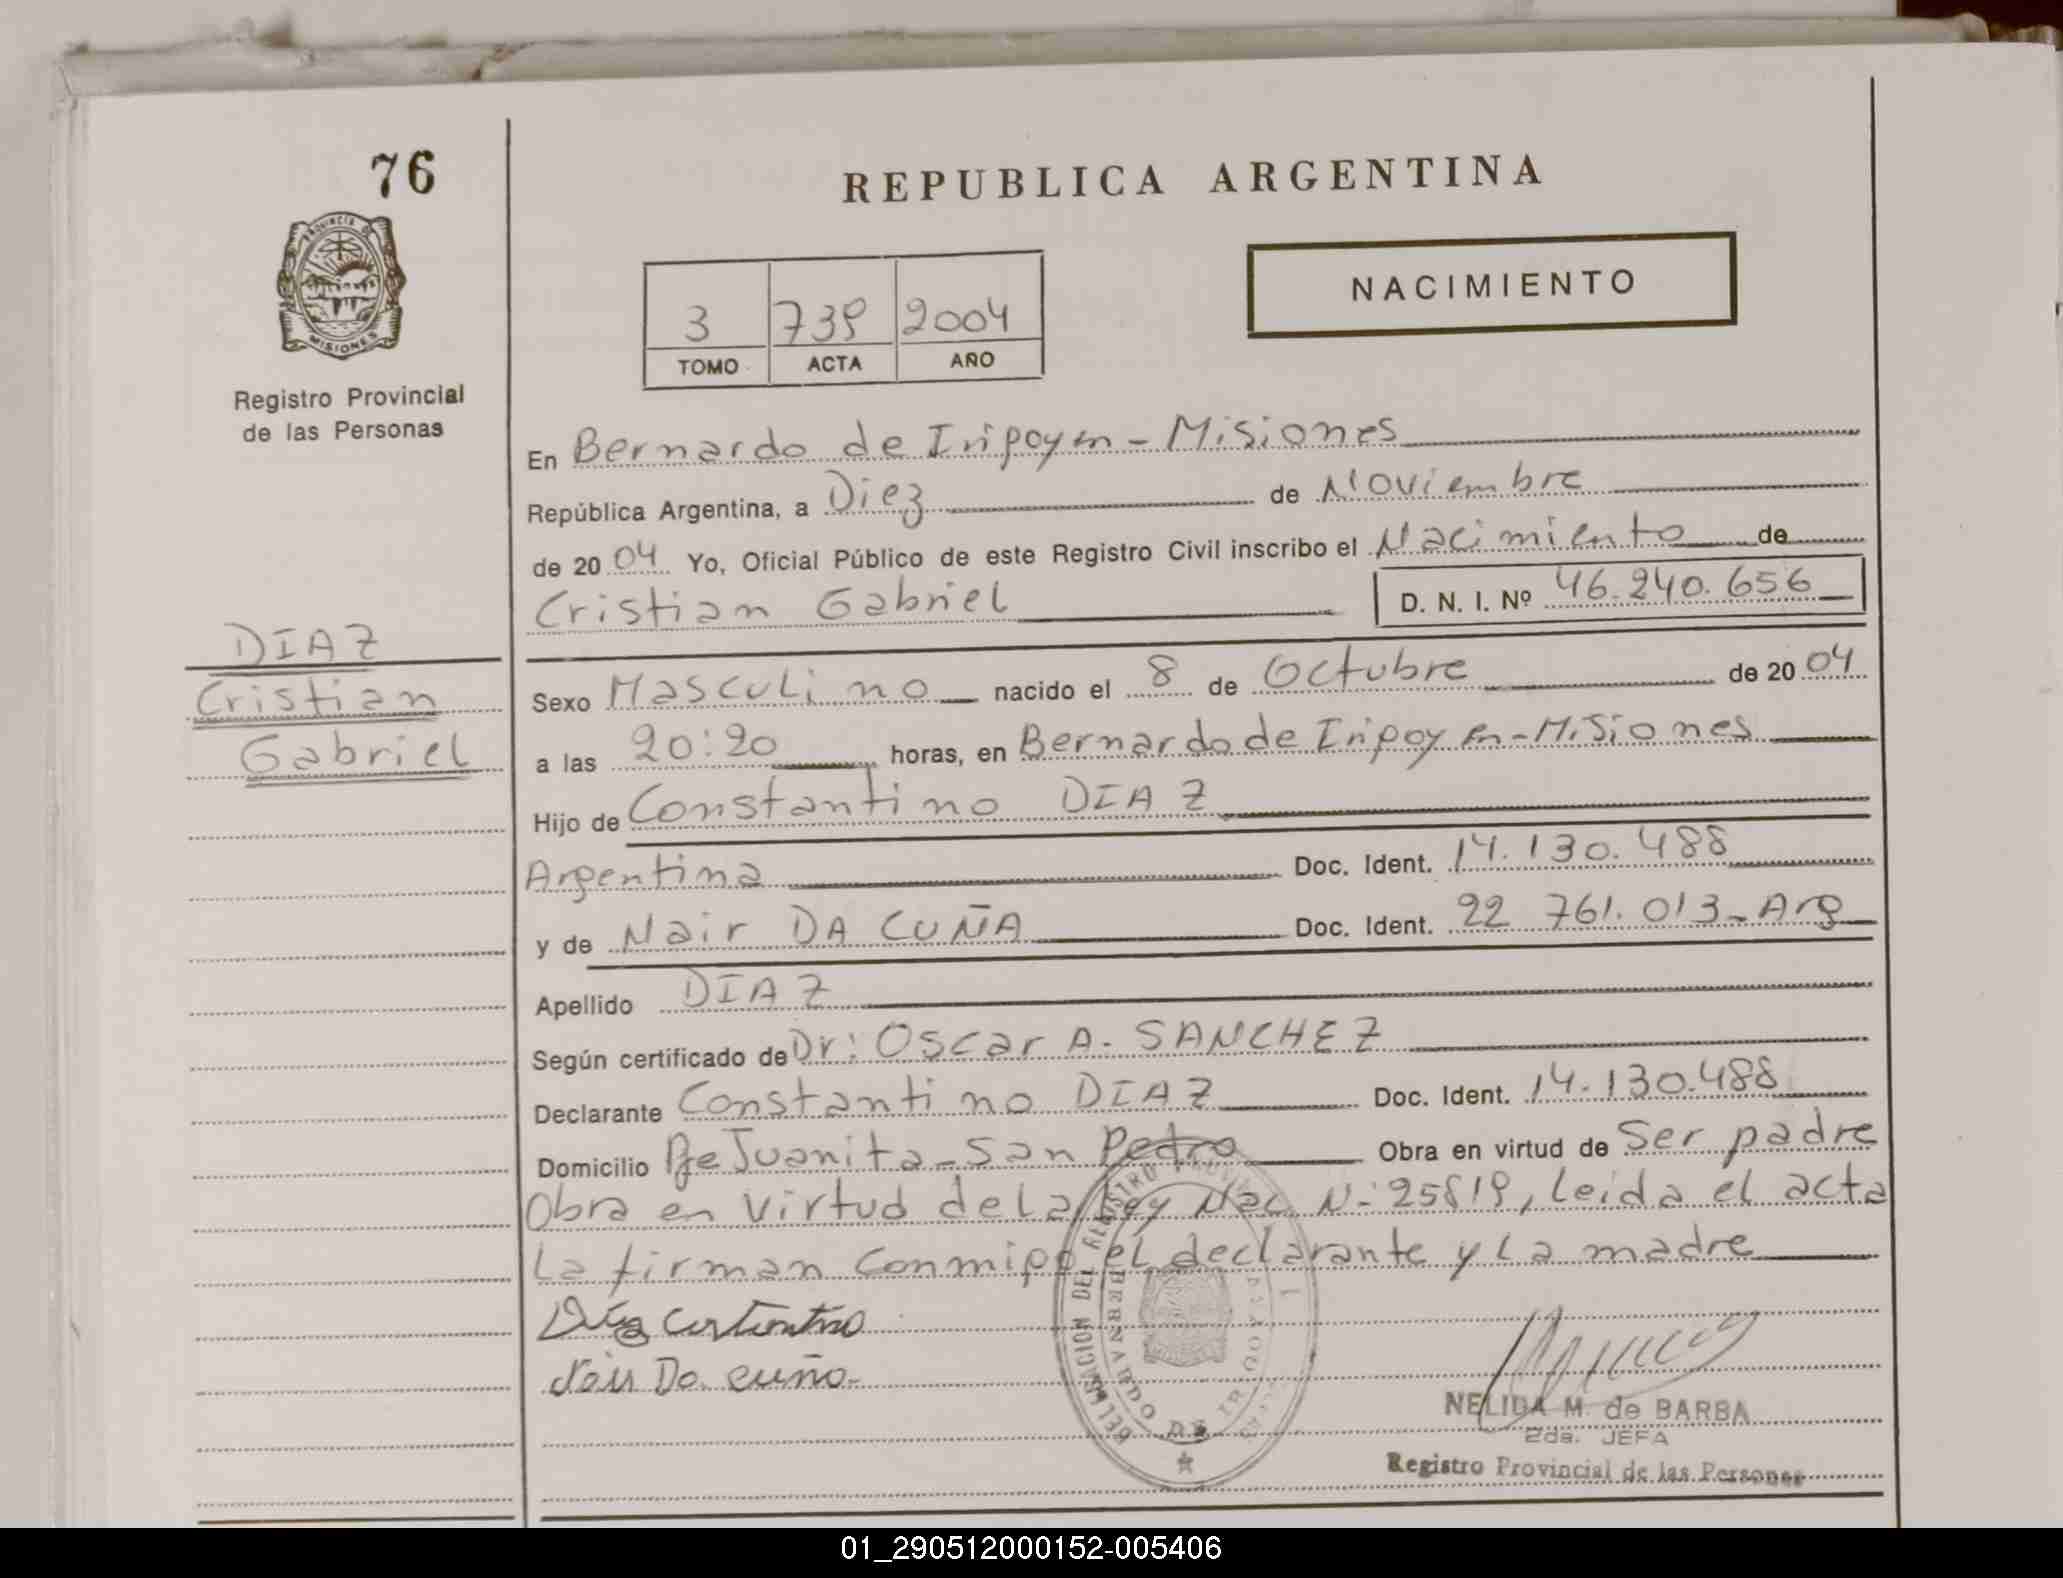 76
REPUBLICA ARGENTINA
PROVINCIA DE
MISIONES
Registro Provincial
de las Personas
NACIMIENTO
3 739 2004
TOMO ACTA AÑO
En Bernardo de Irigoyen - Misiones
República Argentina, a Diez de Noviembre
de 2004 Yo, Oficial Público de este Registro Civil inscribo el Nacimiento de
Cristian Gabriel D. N. I. Nº 46.240.656
DIAZ
Cristian
Gabriel
Sexo Masculino nacido el 8 de Octubre de 2004
a las 20:20 horas, en Bernardo de Irigoyen - Misiones
Hijo de Constantino DIAZ
Argentina Doc. Ident. 14.130.488
y de Nair DA CUÑA Doc. Ident. 22 761.013 - Arg
Apellido DIAZ
Según certificado de Dr: Oscar A. SANCHEZ
Declarante Constantino DIAZ Doc. Ident. 14.130.488
Domicilio Pje Juanita - San Pedro Obra en virtud de Ser padre
Obra en virtud de la Ley Nac N: 25819, leida el acta
la firman conmigo el declarante y la madre
Nair Da cuña
NELIDA M. de BARBA
2da. JEFA
Registro Provincial de las Personas
01_290512000152-005406